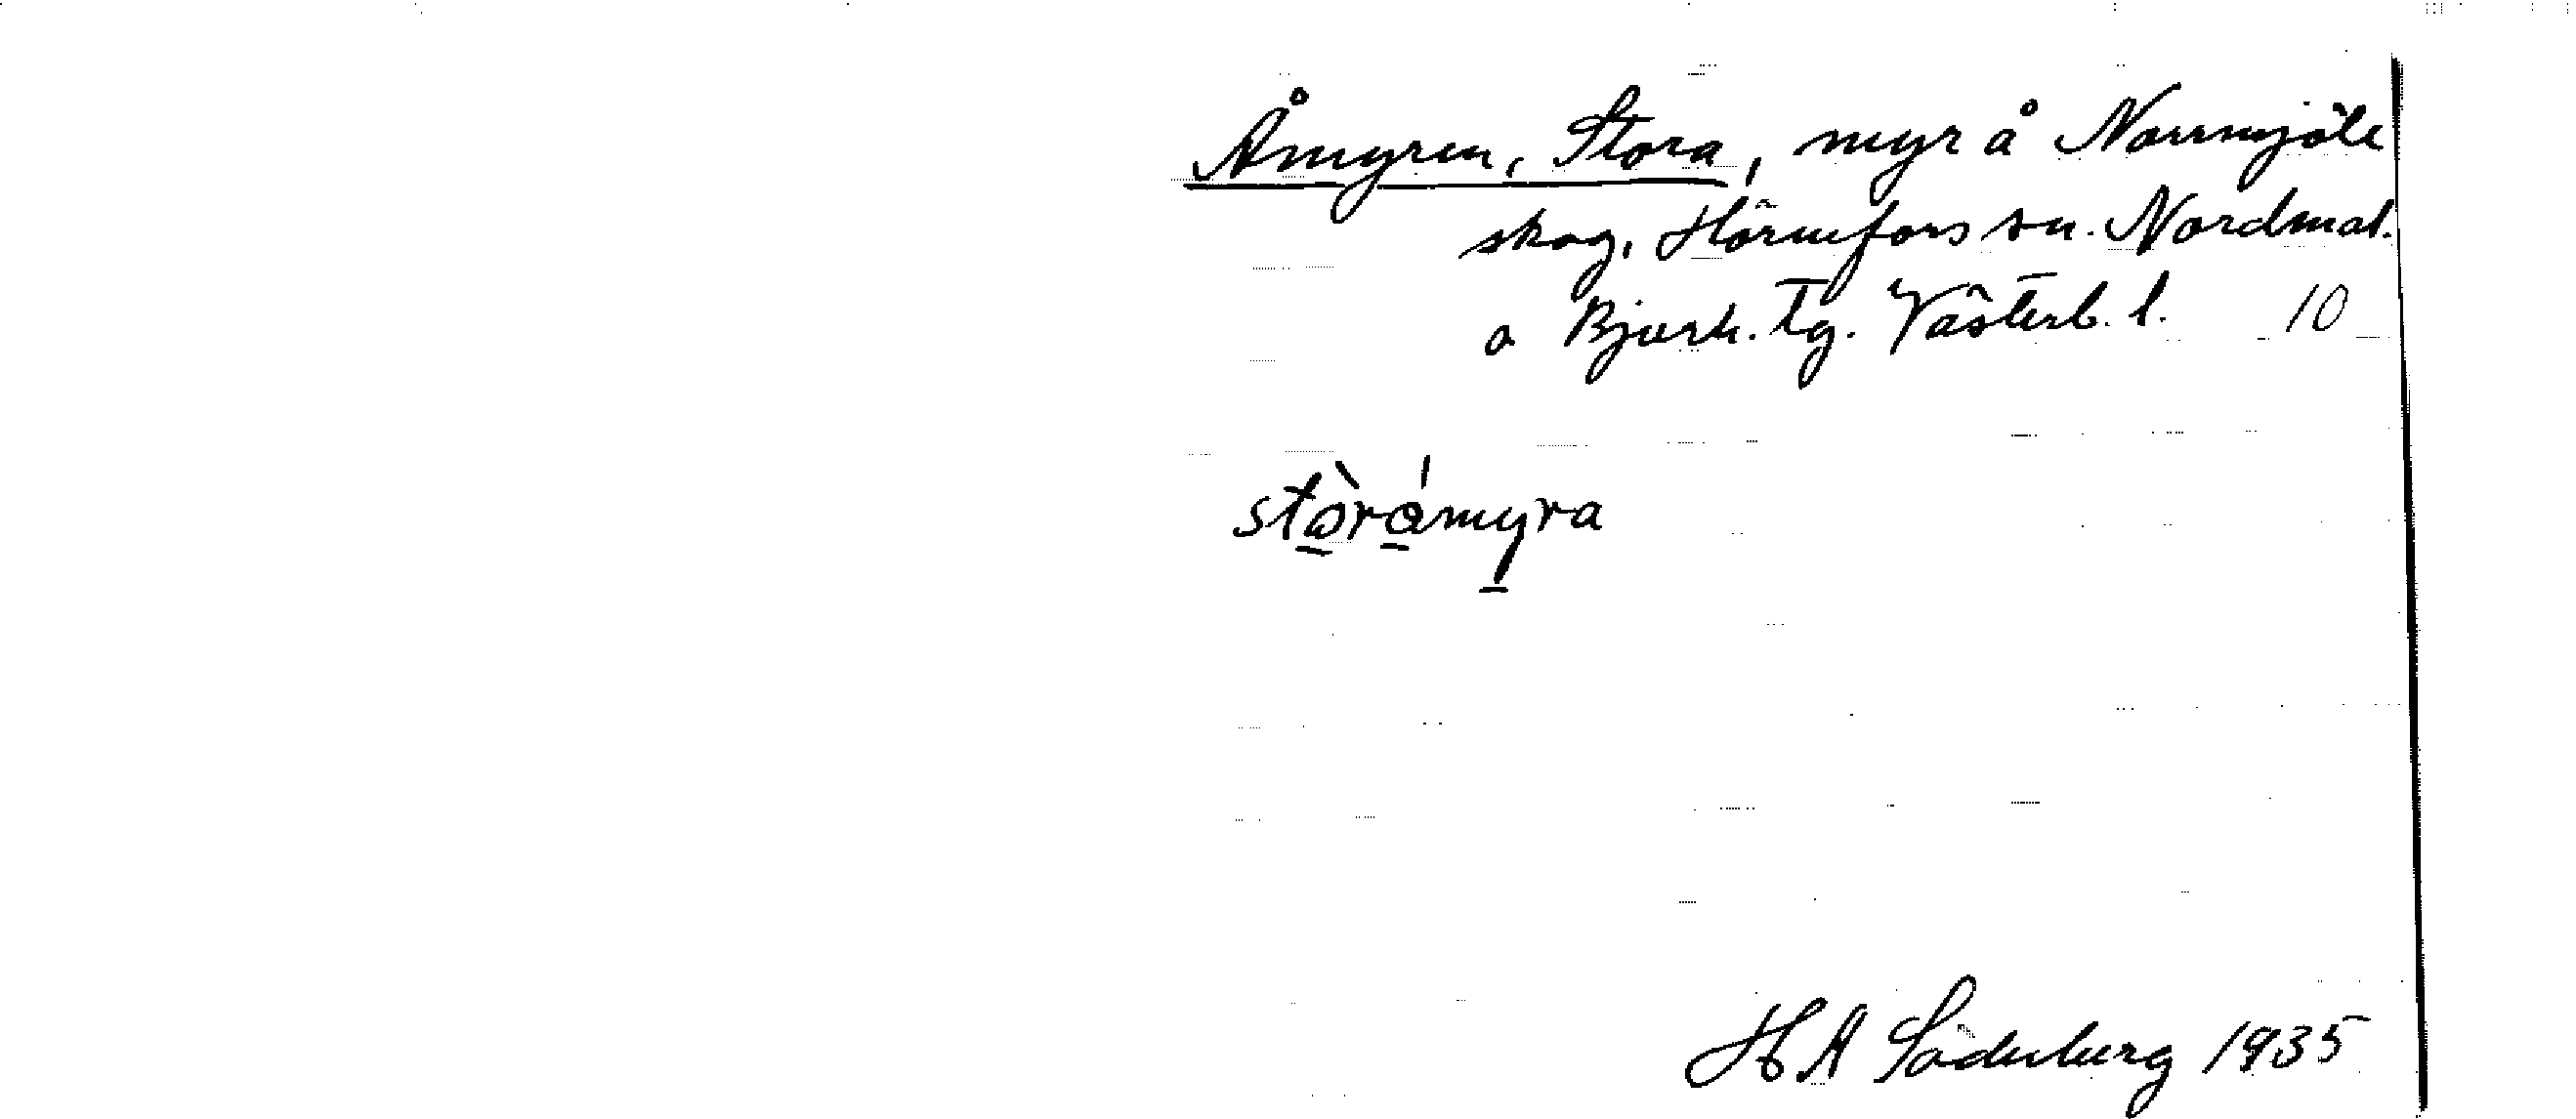 Åmyren, Stora, myr å Norrmjöle
skog, Hörnefors sn. Nordmal.
o Bjurh. tg. Västerb. l. 10
stòråmyra
H A Söderberg 1935